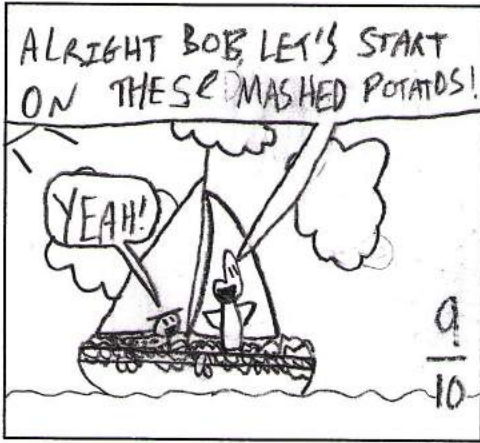 ALRIGHT BOB, LET'S START
ON THESE MASHED POTATOS!
YEAH!
9
10